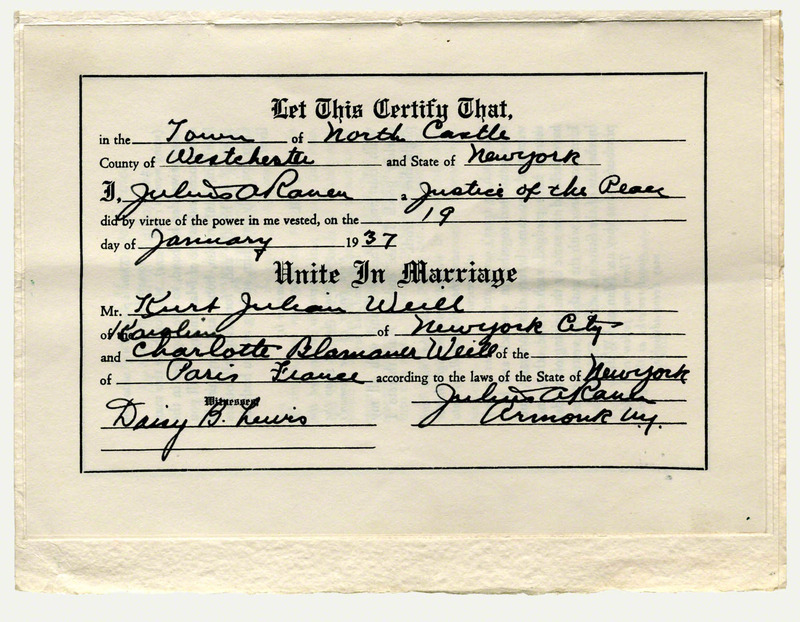 Let This Certify That,
in the Town of North Castle
County of Westchester and State of New York
I, Julius A Raven a Justice of the Peace
did by virtue of the power in me vested, on the 19
day of January 1937
Unite In Marriage
Mr. Kurt Julian Weill
of the of New York City
and Charlotte Blamauer Weill of the
of Paris France according to the laws of the State of New York
Witnesses
Julius A Raven
Daisy B. Lewis Armonk N.Y.